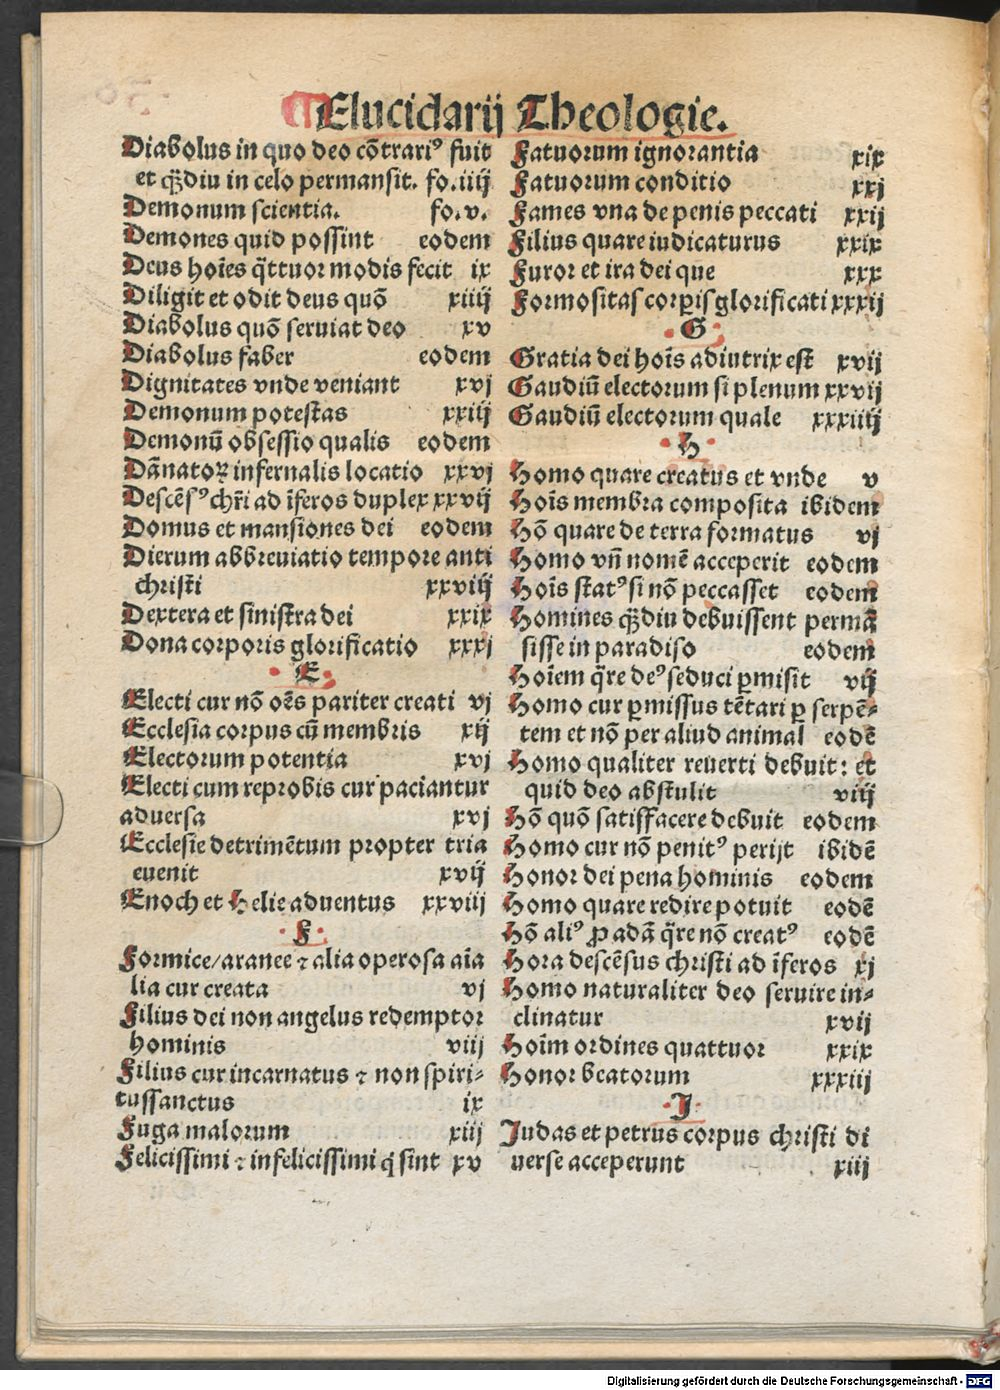 Elucidarij Theologie.
Diabolus in quo deo cõtrariꝰ fuit
et q̃diu in celo permansit. fo. iiij
Demonum scientia. fo. v.
Demones quid possint eodem
Deus hoĩes q̃ttuor modis fecit ix
Diligit et odit deus quõ xiiij
Diabolus quõ seruiat deo xv
Diabolus faber eodem
Dignitates vnde veniant xvj
Demonum potestas xxiij
Demonũ obsessio qualis eodem
Dãnatoꝝ infernalis locatio xxvj
Descẽsꝰ chr̃i ad ĩferos duplex xxvij
Domus et mansiones dei eodem
Dierum abbreuiatio tempore anti
christi xxviij
Dextera et sinistra dei xxix
Dona corporis glorificatio xxxj
·E·
Electi cur nõ oẽs pariter creati vj
Ecclesia corpus cũ membris xij
Electorum potentia xvj
Electi cum reprobis cur paciantur
aduersa xvj
Ecclesie detrimẽtum propter tria
euenit xvij
Enoch et Helie aduentus xxviij
·F·
Formice/aranee ⁊ alia operosa aĩa
lia cur creata vj
Filius dei non angelus redemptor
hominis viij
Filius cur incarnatus ⁊ non spiri-
tussanctus ix
Fuga malorum xiij
Felicissimi ⁊ infelicissimi q̇ sint xv
Fatuorum ignorantia xix
Fatuorum conditio xxj
Fames vna de penis peccati xxij
Filius quare iudicaturus xxix
Furor et ira dei que xxx
Formositas corꝑis glorificati xxxij
·G·
Gratia dei hoĩs adiutrix est xvij
Gaudiũ electorum si plenum xxvij
Gaudiũ electorum quale xxxiiij
·H·
Homo quare creatus et vnde v
Hoĩs membra composita ibidem
Hõ quare de terra formatus vj
Homo vñ nomẽ acceperit eodem
Hoĩs statꝰ si nõ peccasset eodem
Homines q̃diu debuissent permã
sisse in paradiso eodem
Hoĩem q̃re deꝰ seduci ꝑmisit vij
Homo cur ꝑmissus tẽtari ꝑ serpẽ-
tem et nõ per aliud animal eodẽ
Homo qualiter reuerti debuit: et
quid deo abstulit viij
Hõ quõ satisfacere debuit eodem
Homo cur nõ penitꝰ perijt ibidẽ
Honor dei pena hominis eodem
Homo quare redire potuit eodẽ
Hõ aliꝰ ꝓ adã q̃re nõ creatꝰ eodẽ
Hora descẽsus christi ad ĩferos xj
Homo naturaliter deo seruire in-
clinatur xvij
Hoĩm ordines quattuor xxix
Honor beatorum xxxiij
·I·
Judas et petrus corpus christi di
uerse acceperunt xiij
Digitalisierung gefördert durch die Deutsche Forschungsgemeinschaft - DFG